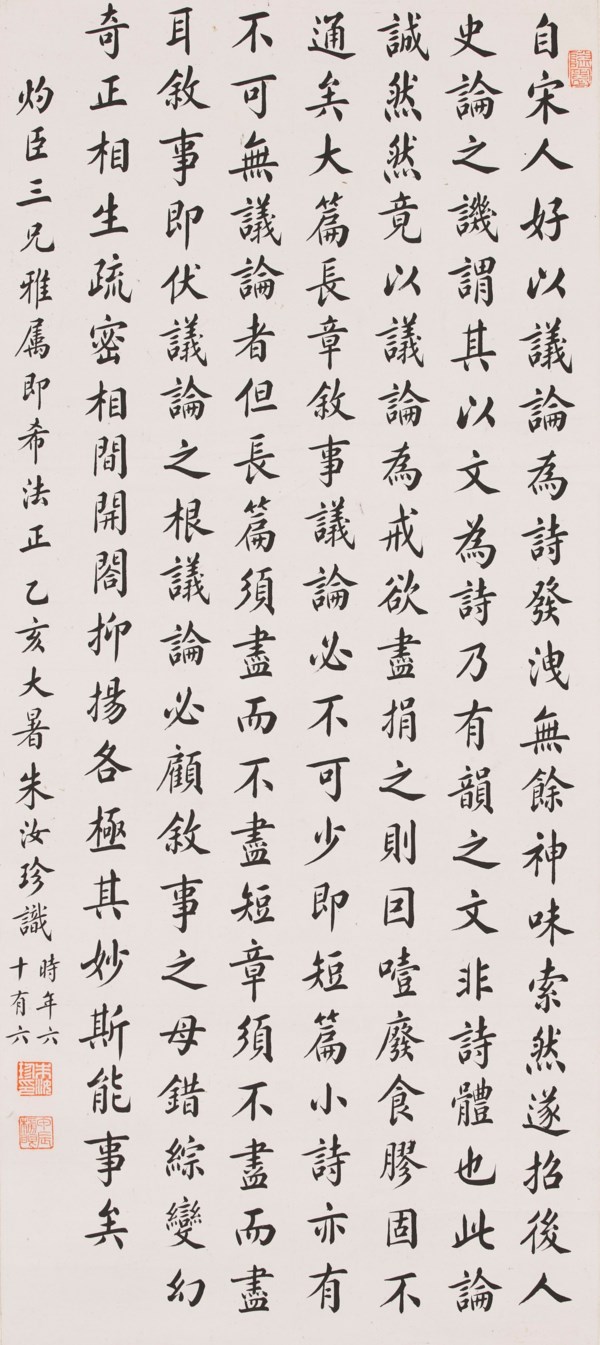 自宋人好以議論為詩發洩無餘神味索然遂招後人
史論之譏謂其以文為詩乃有韻之文非詩體也此論
誠然然竟以議論為戒欲盡捐之則因噎廢食膠固不
通矣大篇長章敘事議論必不可少即短篇小詩亦有
不可無議論者但長篇須盡而不盡短章須不盡而盡
耳敘事即伏議論之根議論必顧敘事之母錯綜變幻
奇正相生疏密相間開闔抑揚各極其妙斯能事矣
灼臣三兄雅屬即希法正乙亥大暑朱汝珍識
時年六
十有六
朱汝珍印